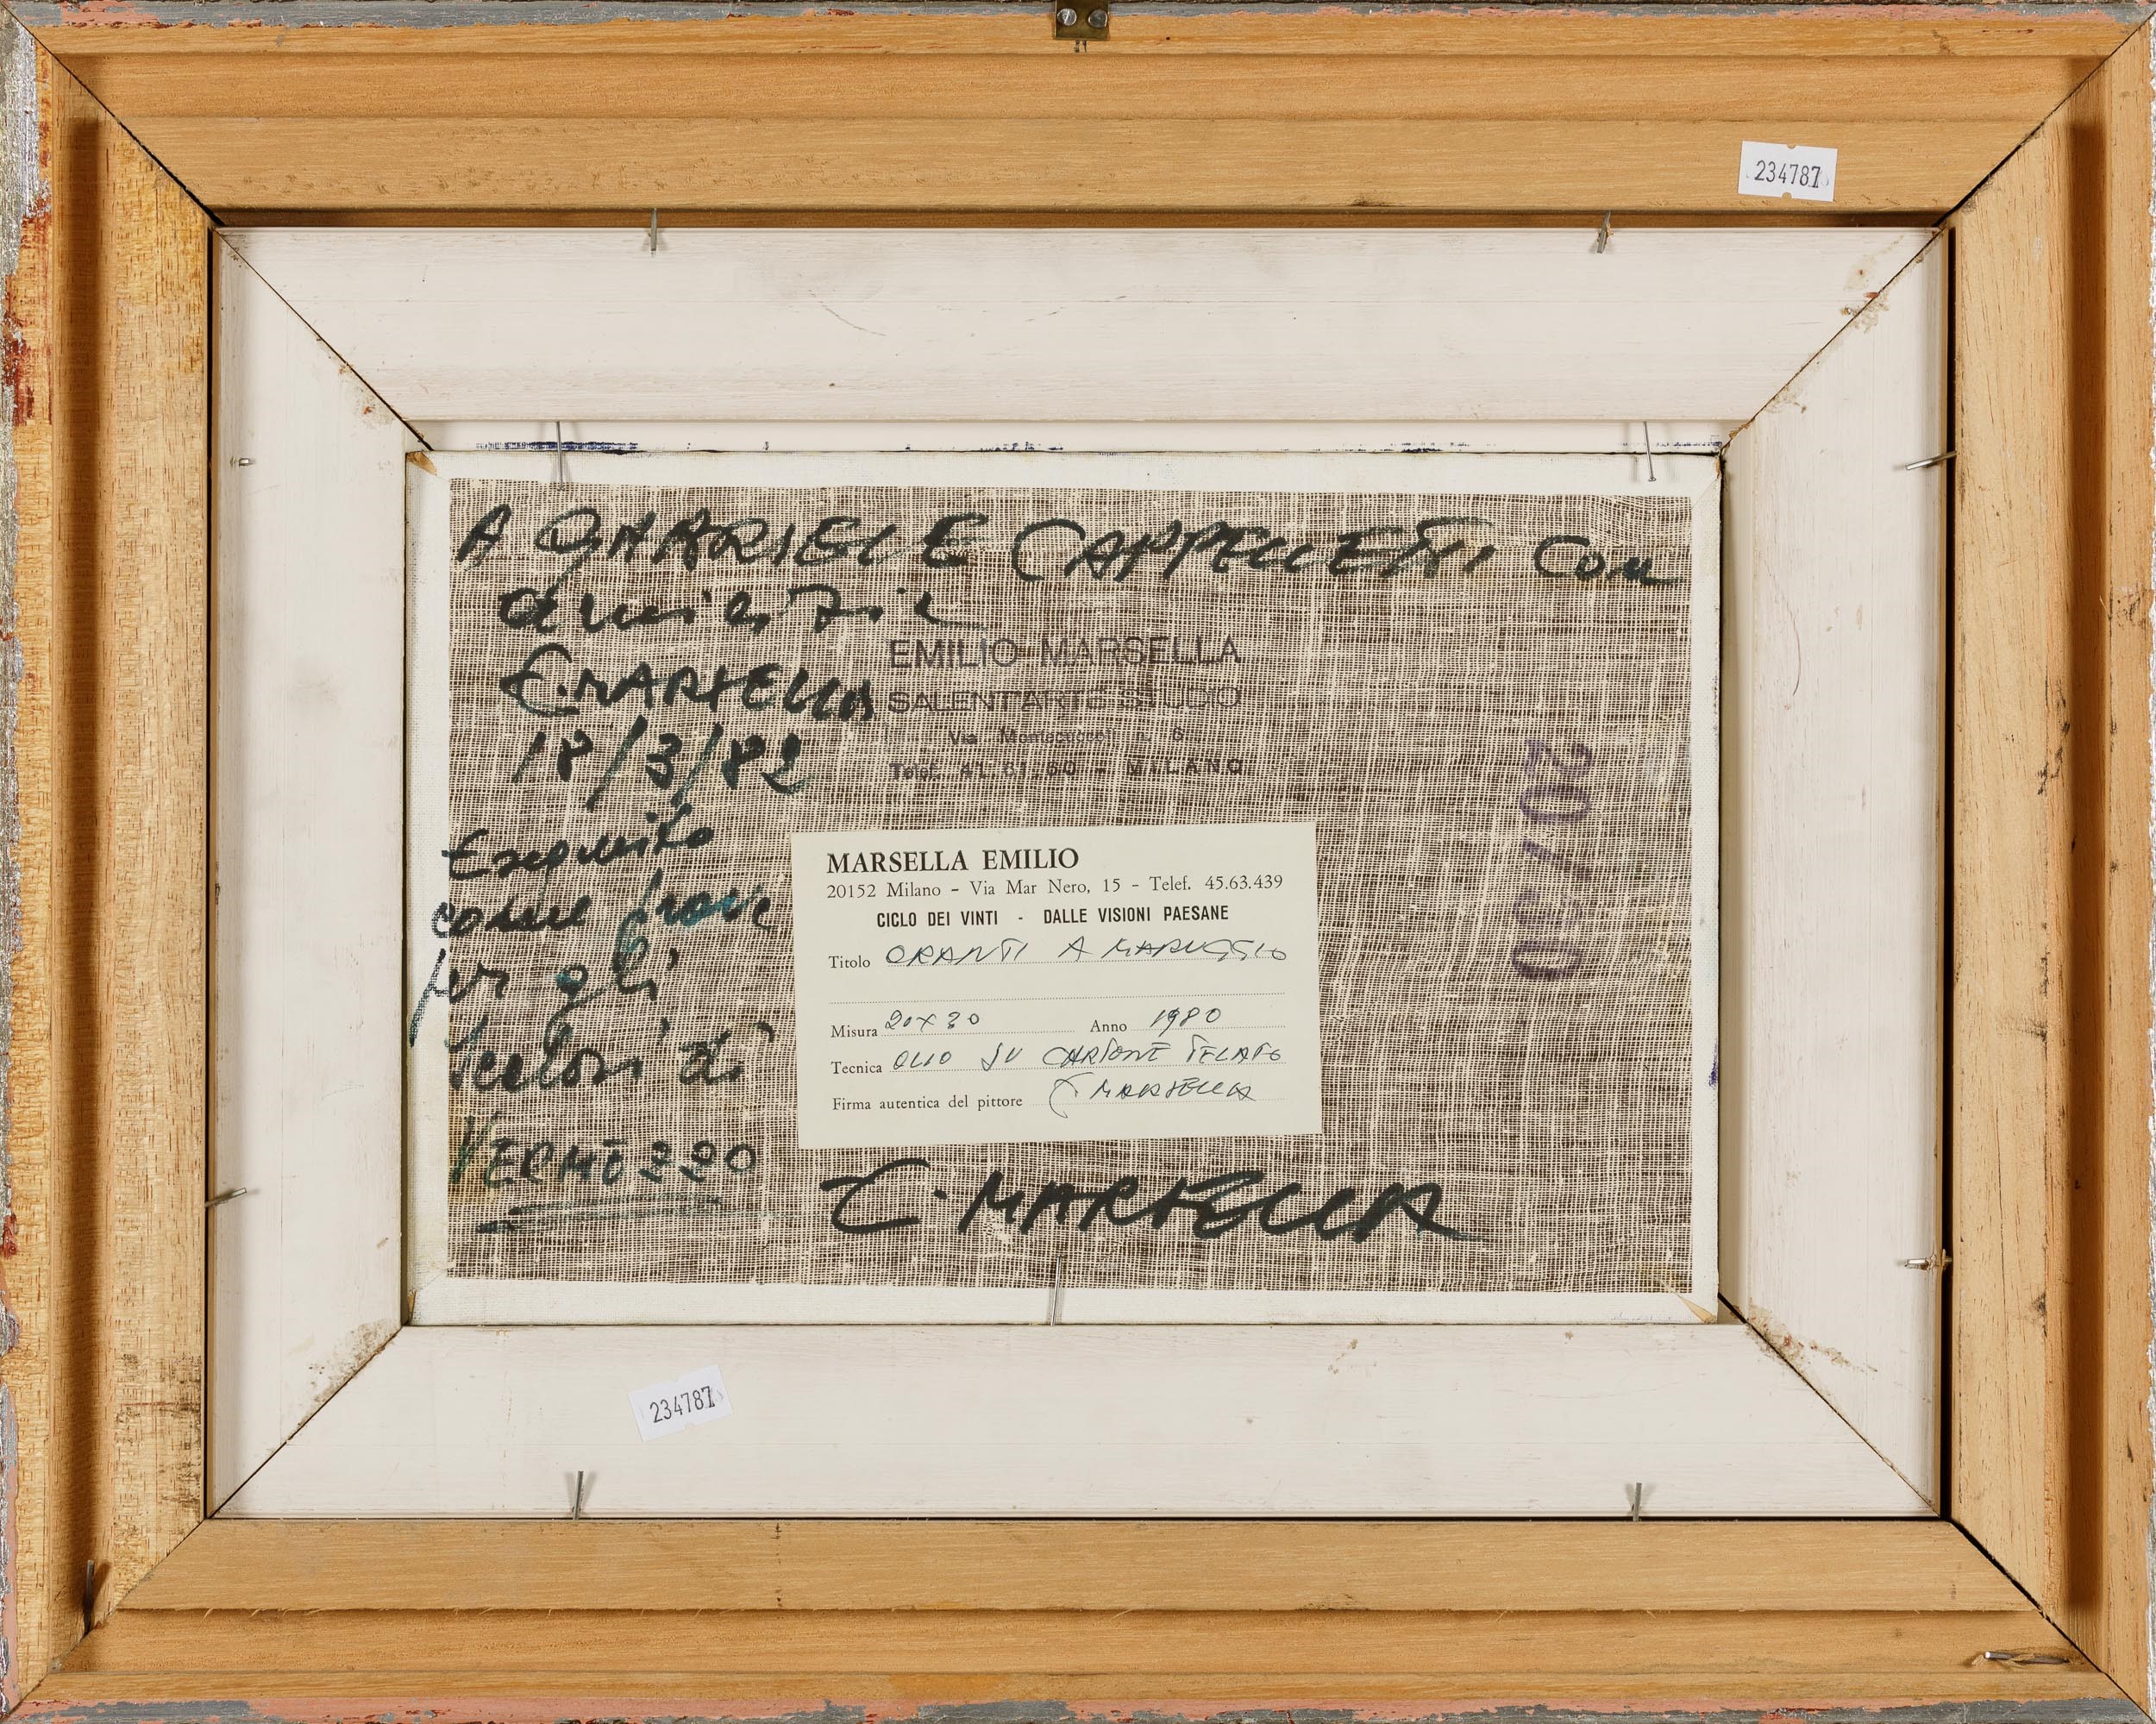 234787
A GABRIELE CAPPELLETTI CON
amicizia
E. MARSELLA
18/3/82
EMILIO MARSELLA
SALENT'ARTE STUDIO
Via Montecuccoli n. 6
Telef. 41.61.60 - MILANO
20/30
Eseguito
come prove
per gli
scelosi di
MARSELLA EMILIO
20152 Milano - Via Mar Nero, 15 - Telef. 45.63.439
CICLO DEI VINTI - DALLE VISIONI PAESANE
Titolo ORANTI A MARUGGIO
Misura 20x30 Anno 1980
Tecnica OLIO SU CARTONE TELATO
Firma autentica del pittore E. MARSELLA
E. MARSELLA
234787